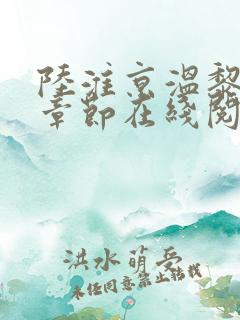 陸淮京溫黎
章節在綫閱
洪水萌受
未經同意禁止轉載